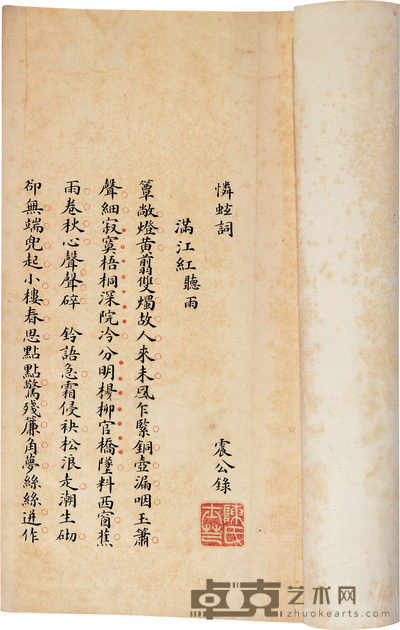 憐蚿詞
震公錄
滿江紅聽雨
簟敞燈黃翦雙燭故人來未風乍緊銅壺漏咽玉簫
聲細寂寞梧桐深院冷分明楊柳官橋墜料西窗蕉
雨卷秋心聲聲碎 鈴語急霜侵袂松浪走潮生砌
卻無端兜起小樓春思點點驚殘簾角夢絲絲迸作
卓克艺术网
zhuokearts.com